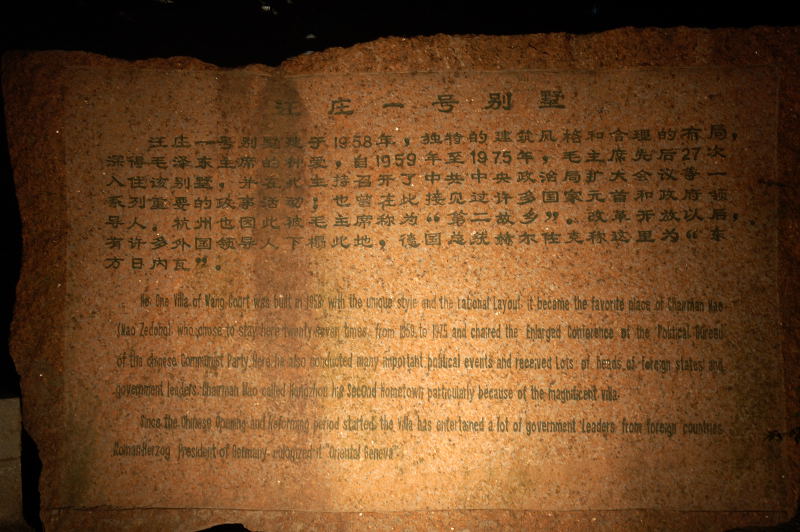 汪庄一号别墅
汪庄一号别墅建于1958年，独特的建筑风格和合理的布局，
深得毛泽东主席的钟爱，自1959年至1975年，毛主席先后27次
入住该别墅，并在此主持召开了中共中央政治局扩大会议等一
系列重要的政事活动；也曾在此接见过许多国家元首和政府领
导人。杭州也因此被毛主席称为“第二故乡”。改革开放以后，
有许多外国领导人下榻此地，德国总统赫尔佐克称这里为“东
方日内瓦”。
No. One Villa of Wang Court was built in 1958 with the unique style and the rational Layout. it became the favorite place of Chairman Mao
(Mao Zedong) who chose to stay here twenty-seven times from 1959 to 1975 and chaired the Enlarged Conference of the Political Bureau
of the chinese Communist Party. Here he also conducted many important political events and received Lots of heads of foreign states and
government leaders. Chairman Mao called Hangzhou his Second Hometown particularly because of the magnificent villa.
Since the Chinese Opening and Reforming period started, the villa has entertained a lot of government Leaders from foreign countries.
Roman·Herzog president of Germany eulogized it "Oriental Geneva".